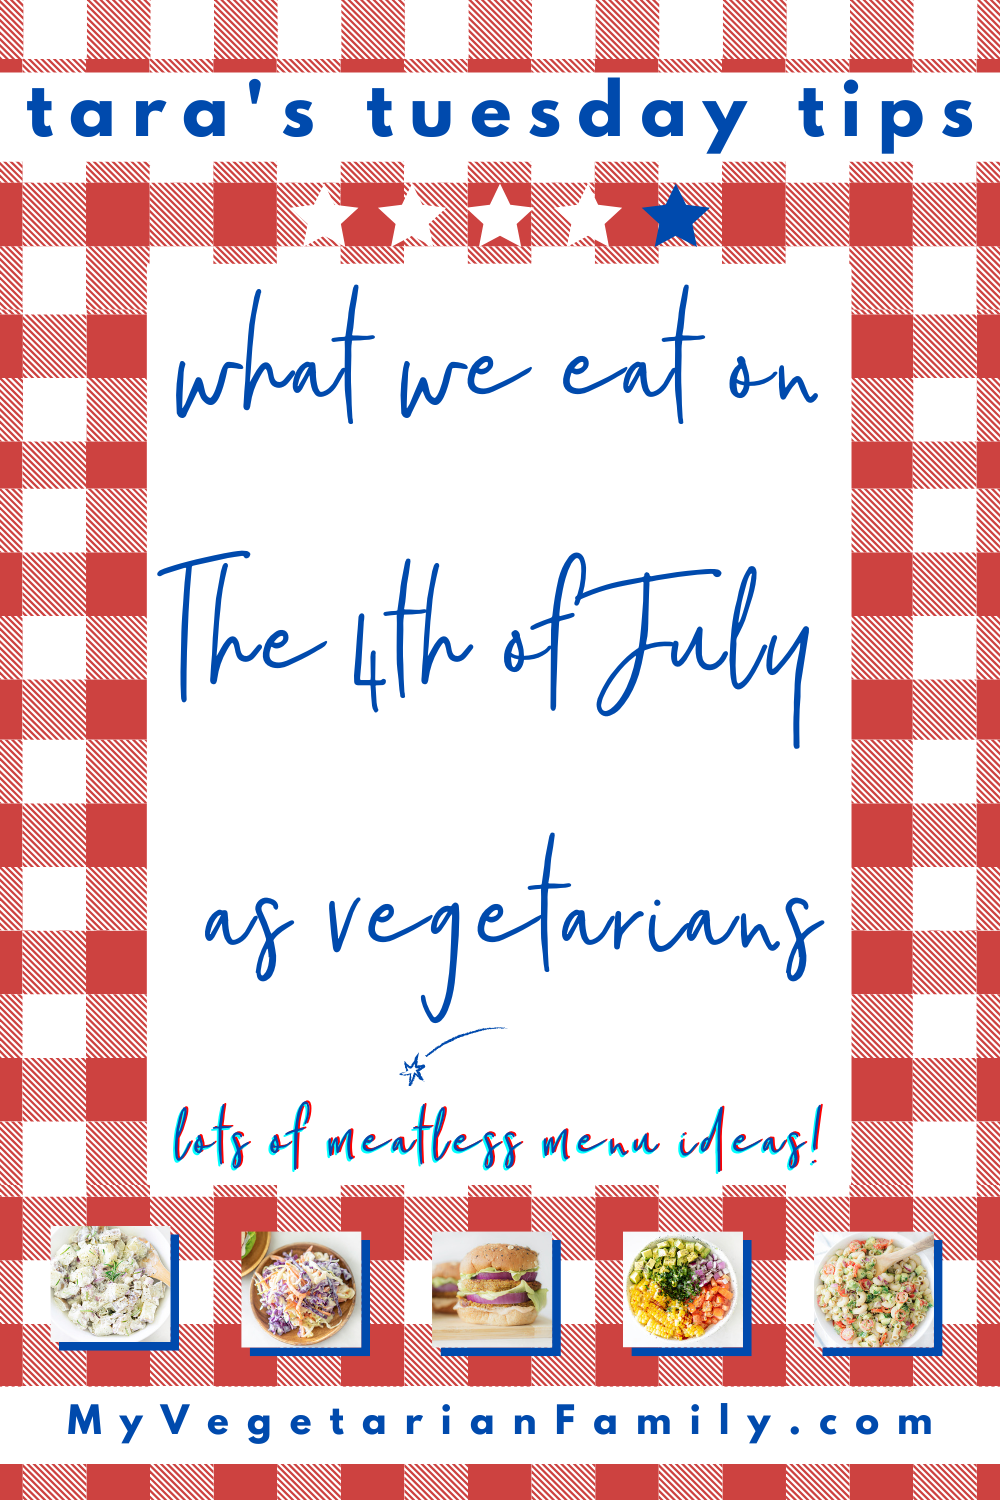 tara's tuesday tips
what we eat on
The 4th of July
as vegetarians
lots of meatless menu ideas!
MyVegetarianFamily.com